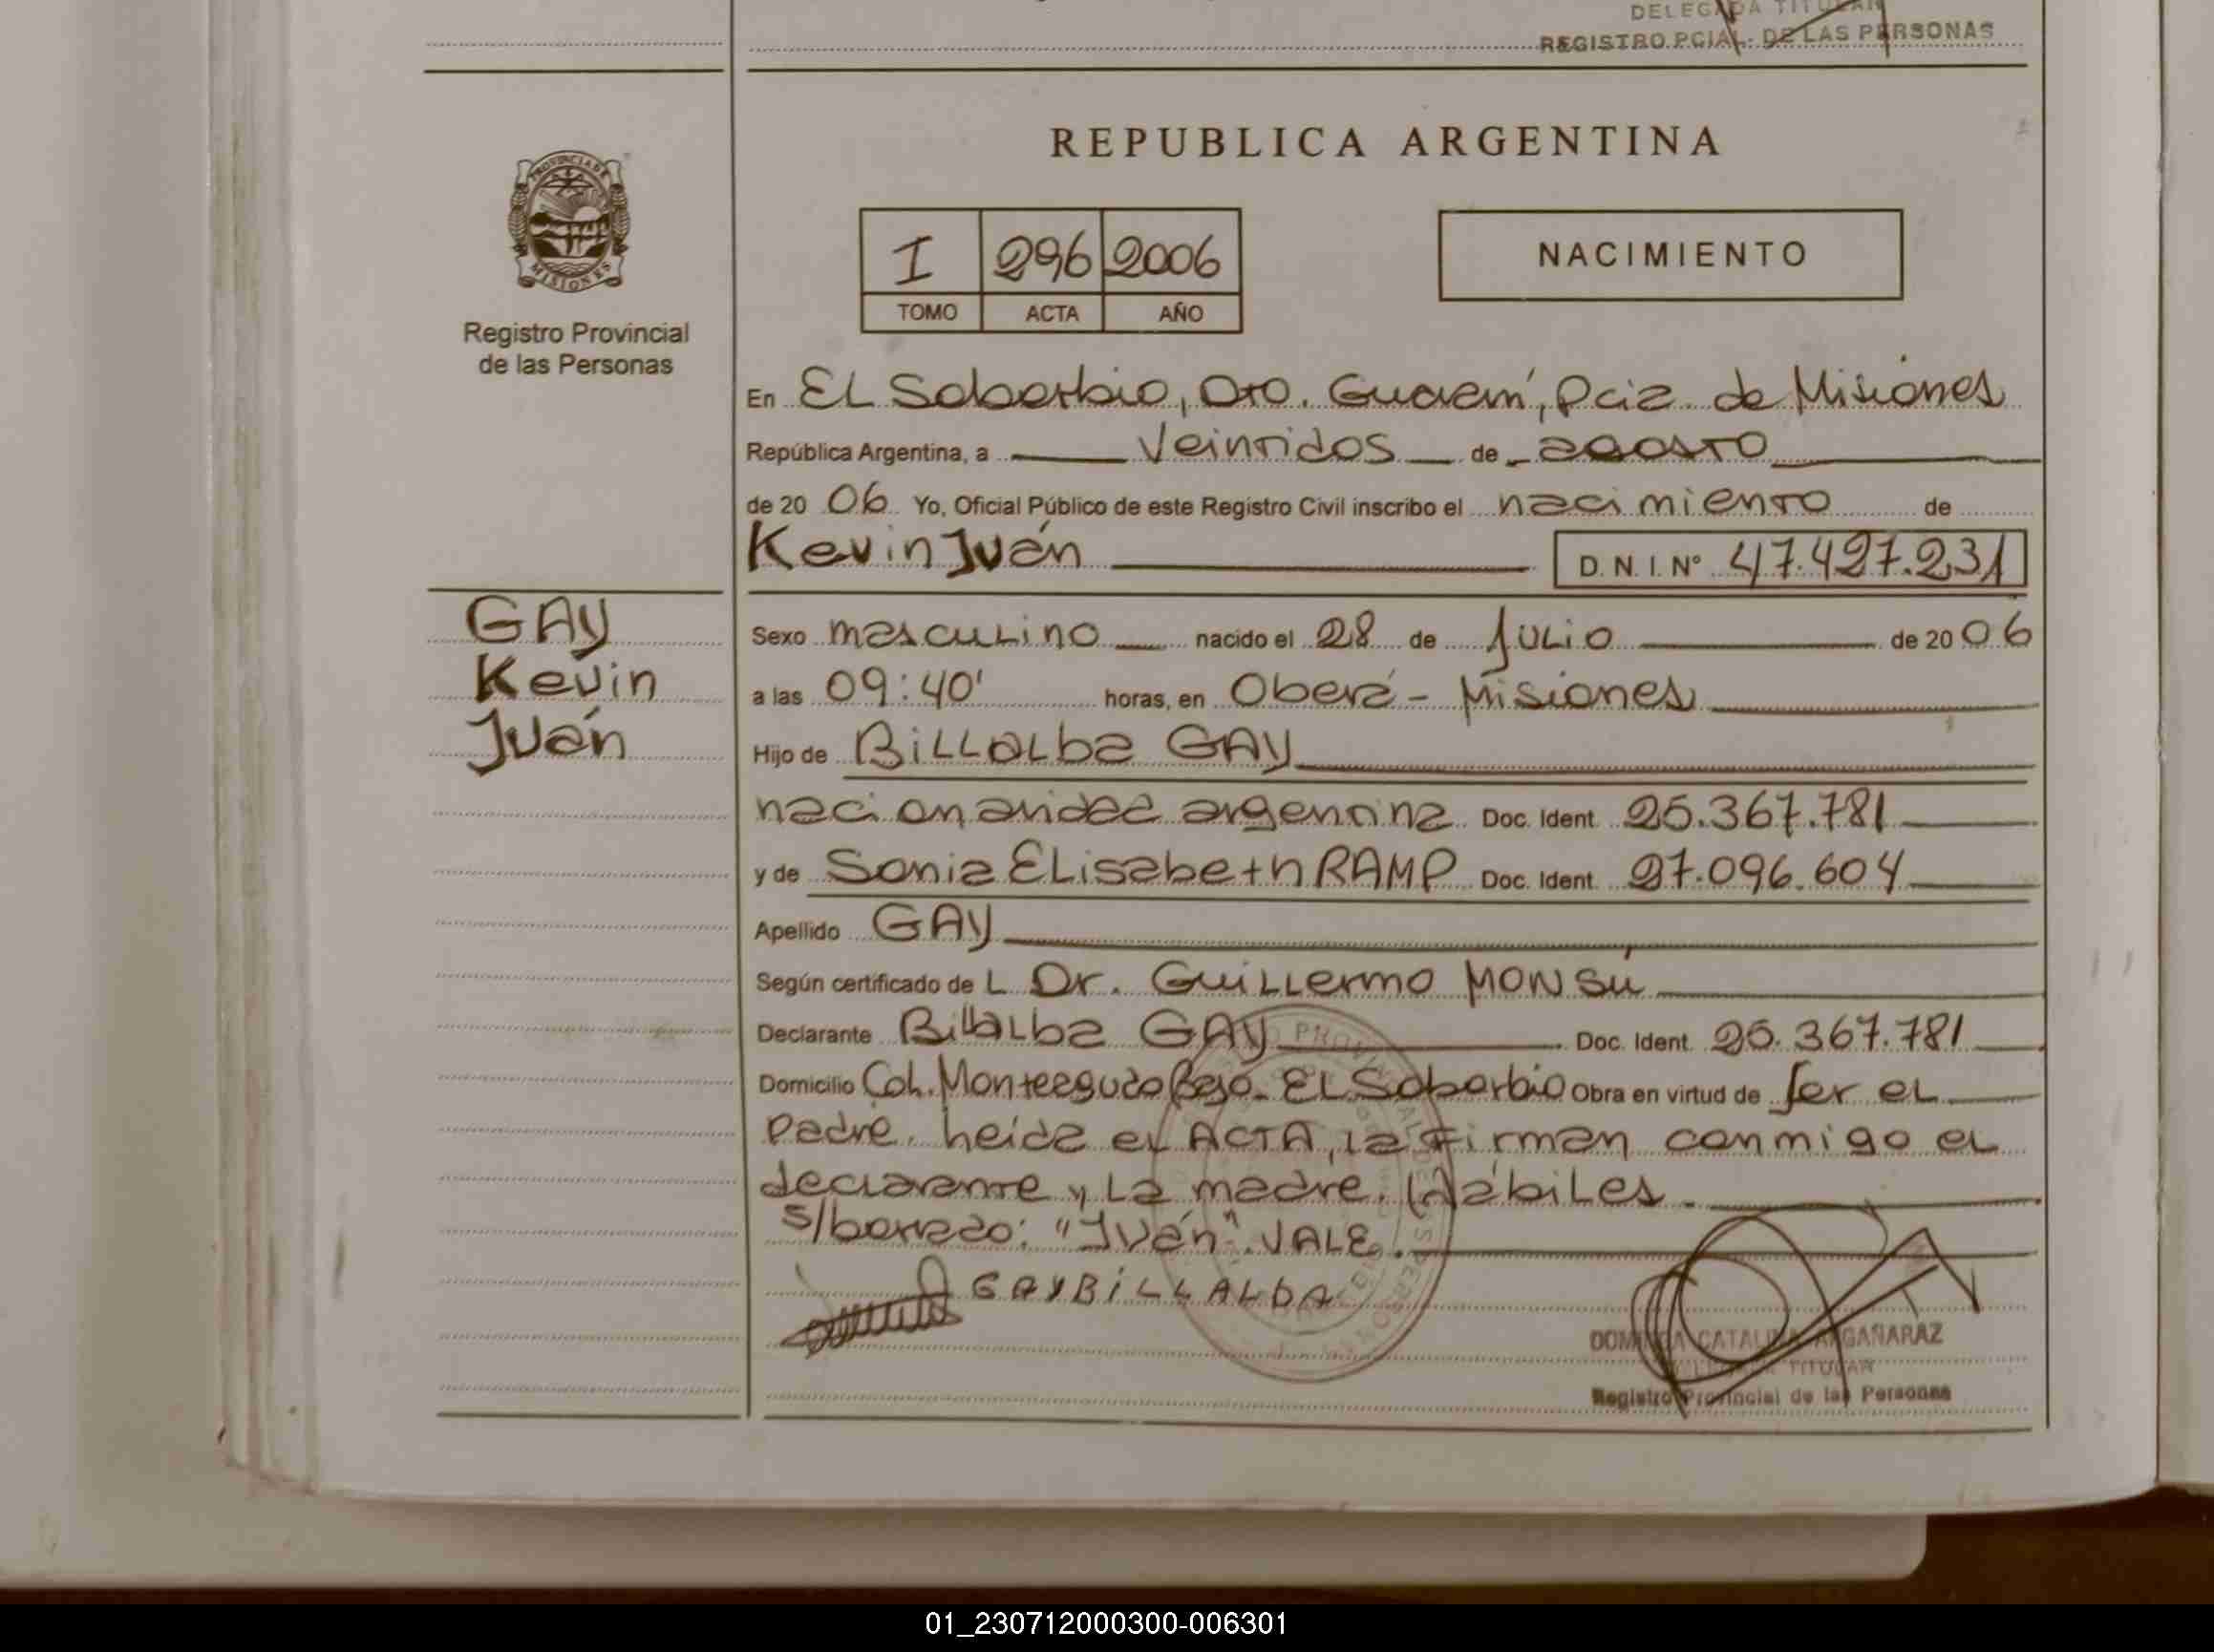 DELEGADA TITULAR
REGISTRO PCIAL. DE LAS PERSONAS
REPUBLICA ARGENTINA
PROVINCIA DE
MISIONES
Registro Provincial
de las Personas
I 296 2006
TOMO ACTA AÑO
NACIMIENTO
En EL Soberbio, Dto. Guaraní, Pcia. de Misiones
República Argentina, a Veintidos de agosto
de 20 06 Yo, Oficial Público de este Registro Civil inscribo el nacimiento de
Kevin Iván D. N. I. Nº 47.427.231
GAY
Kevin
Iván
Sexo masculino nacido el 28 de Julio de 20 06
a las 09:40' horas, en Oberá - Misiones
Hijo de BiLLaLba GAY
nacionalidad argentina Doc. Ident. 25.367.781
y de Sonia ELisabeth RAMP Doc. Ident. 27.096.604
Apellido GAY
Según certificado de L Dr. GuiLLermo MONSÚ
Declarante BillaLba GAY Doc. Ident. 25.367.781
Domicilio Col. Monteagudo EL Soberbio Obra en virtud de ser eL
padre. Leida el ACTA, la firman conmigo el
declarante y La madre. Hábiles.
s/borrado: "Iván". VALE.
GAY BiLLALBA
DOMINGA CATALINA ARGAÑARAZ
DELEGADA TITULAR
Registro Provincial de las Personas
01_230712000300-006301